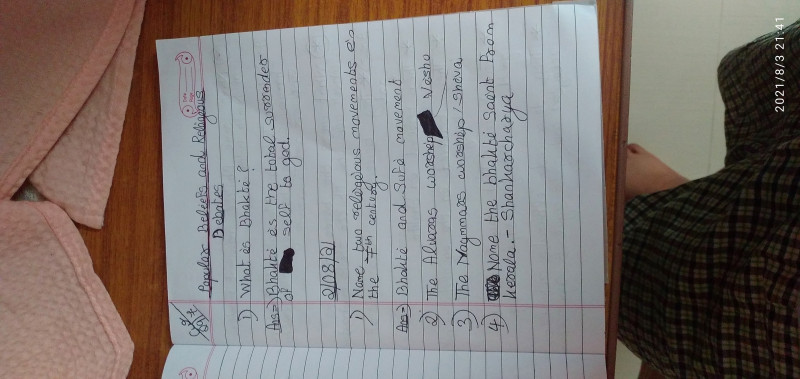 Popular Beliefs and Religious
Debates
1) What is Bhakti?
Ans=) Bhakti is the total surrender
of self to god.
2/08/21
1) Name two religious movements is
the 7th century.
Ans=) Bhakti and Sufi movement
2) The Alvaras worship Neshu
3) The Naymmars worship Sheva
4) Name the bhakti Saent From
Kerala. - Shankarcharya
2021/8/3 21:41